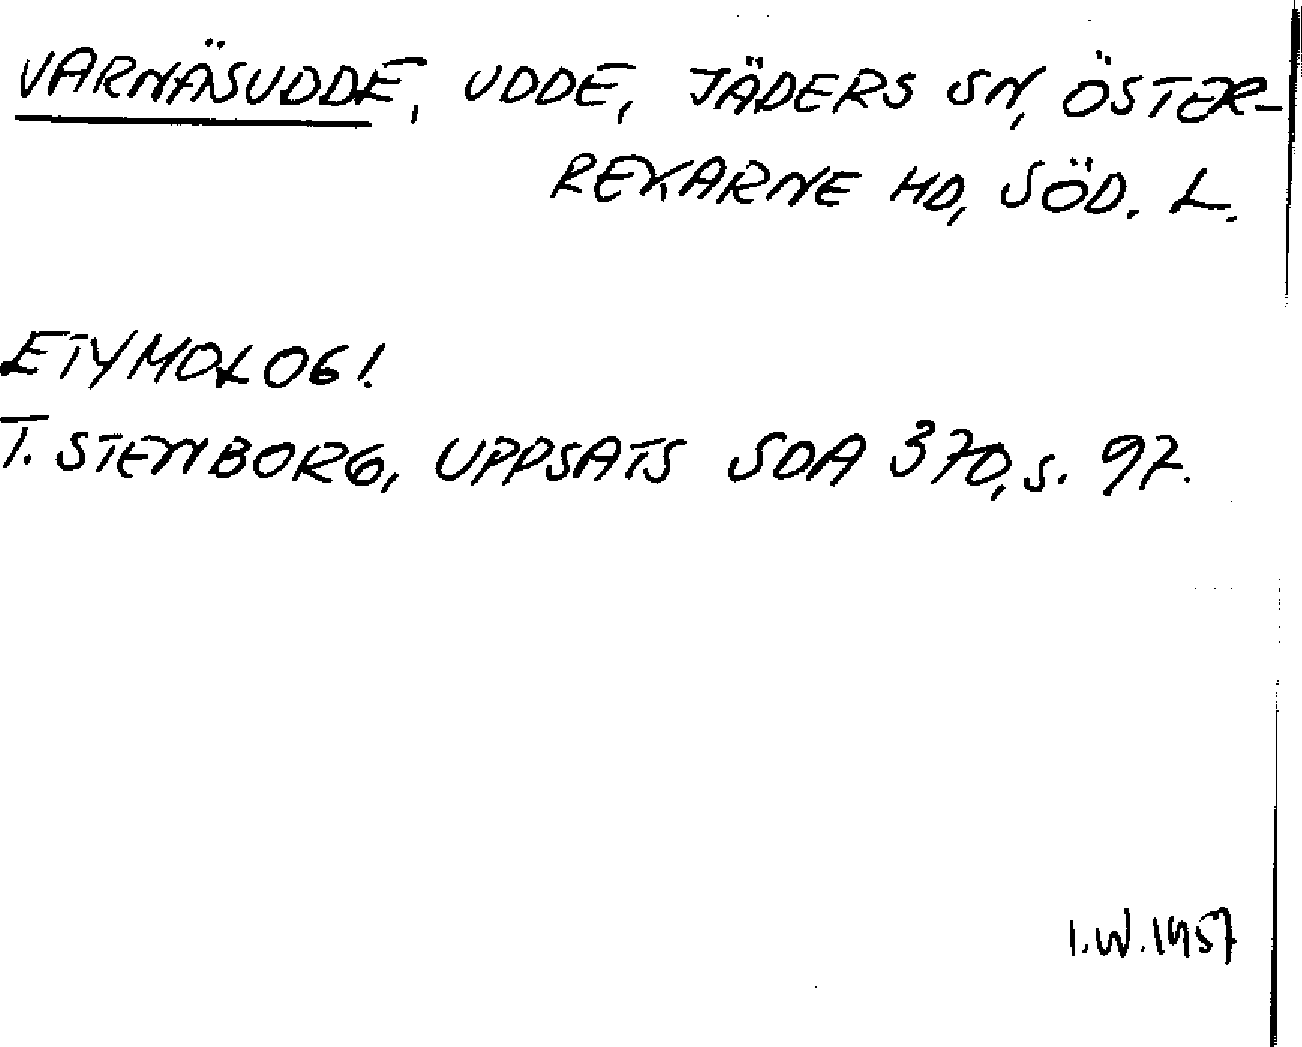 VARNÄSUDDE, UDDE, JÄDERS SN, ÖSTER-
REKARNE HD, SÖD. L.
ETYMOLOGI.
T. STENBORG, UPPSATS SOA 370, s. 97.
I.W. 1957